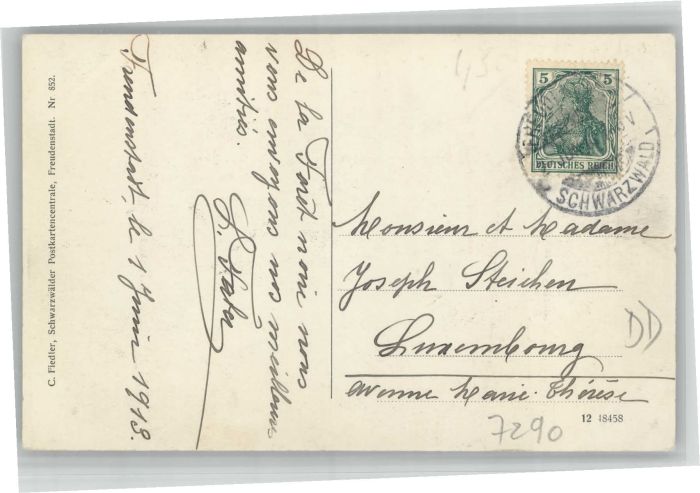 De la Forêt noire nous
vous envoyons nos meilleures
amitiés.
Freudenstadt, le 1 Juin 1913.
Monsieur et Madame
Joseph Steichen
Luxembourg
avenue Marie-Thérèse
5 5
DEUTSCHES REICH
SCHWARZWALD
C. Fiedler, Schwarzwälder Postkartencentrale, Freudenstadt. Nr 852.
12 48458
7290
DD